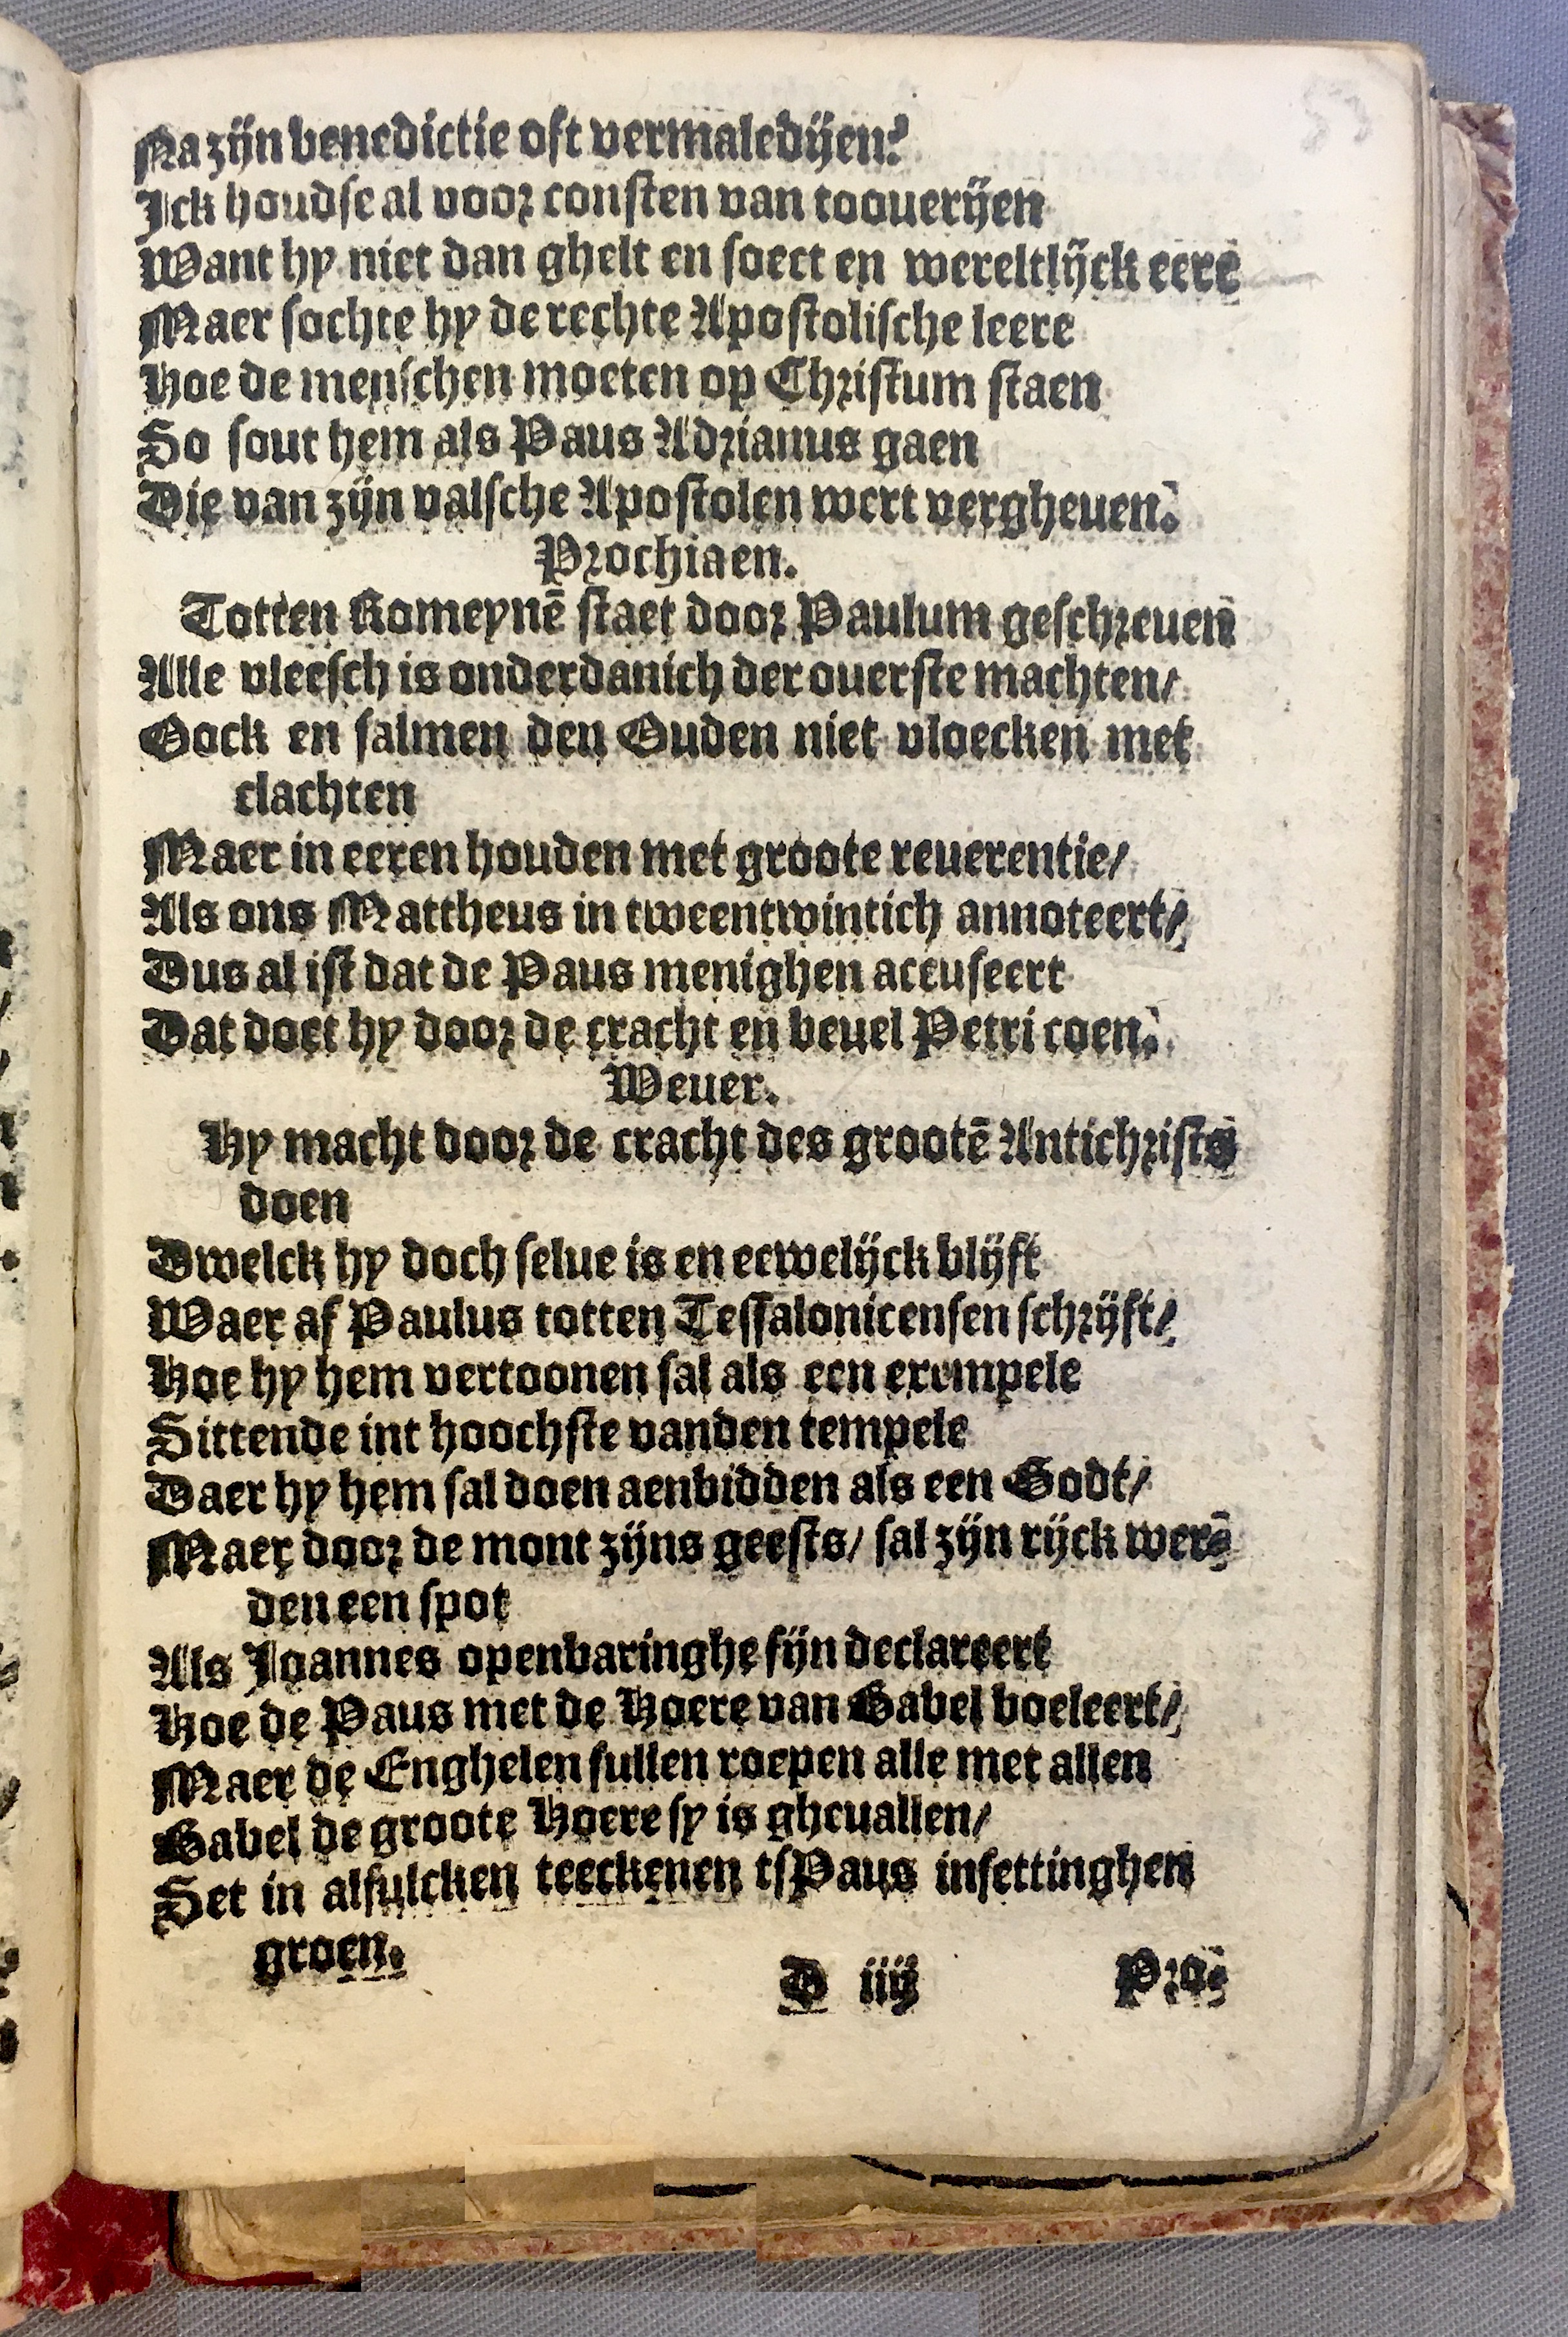 Na zijn benedictie oft vermaledijen?
Ick houdse al voor consten van tooverijen
Want hy niet dan ghelt en soect en wereltlijck eere
Maer sochte hy de rechte Apostolische leere
Hoe de menschen moeten op Christum staen
So sout hem als Paus Adrianus gaen
Die van zijn valsche Apostolen wert vergheuen.
Prochiaen.
Totten Romeynē staet door Paulum geschreuen
Alle vleesch is onderdanich der ouerste machten/
Oock en salmen den Ouden niet vloecken met
clachten
Maer in eeren houden met groote reuerentie/
Als ons Mattheus in tweentwintich annoteert/
Dus al ist dat de Paus menighen accuseert
Dat doet hy door de cracht en beuel Petri coen.
Weuer.
Hy macht door de cracht des grootē Antichrists
doen
Dwelck hy doch selue is en eewelijck blijft
Waer af Paulus totten Tessalonicensen schrijft/
Hoe hy hem vertoonen sal als een exempele
Sittende int hoochste vanden tempele
Daer hy hem sal doen aenbidden als een Godt/
Maer door de mont zijns geests/ sal zijn rijck wer-
den een spot
Als Joannes openbaringhe fijn declareert
Hoe de Paus met de Hoere van Babel boeleert/
Maer de Enghelen sullen roepen alle met allen
Babel de groote Hoere sy is gheuallen/
Set in alsulcken teeckenen tsPaus insettinghen
groen.
D iiij Pro-